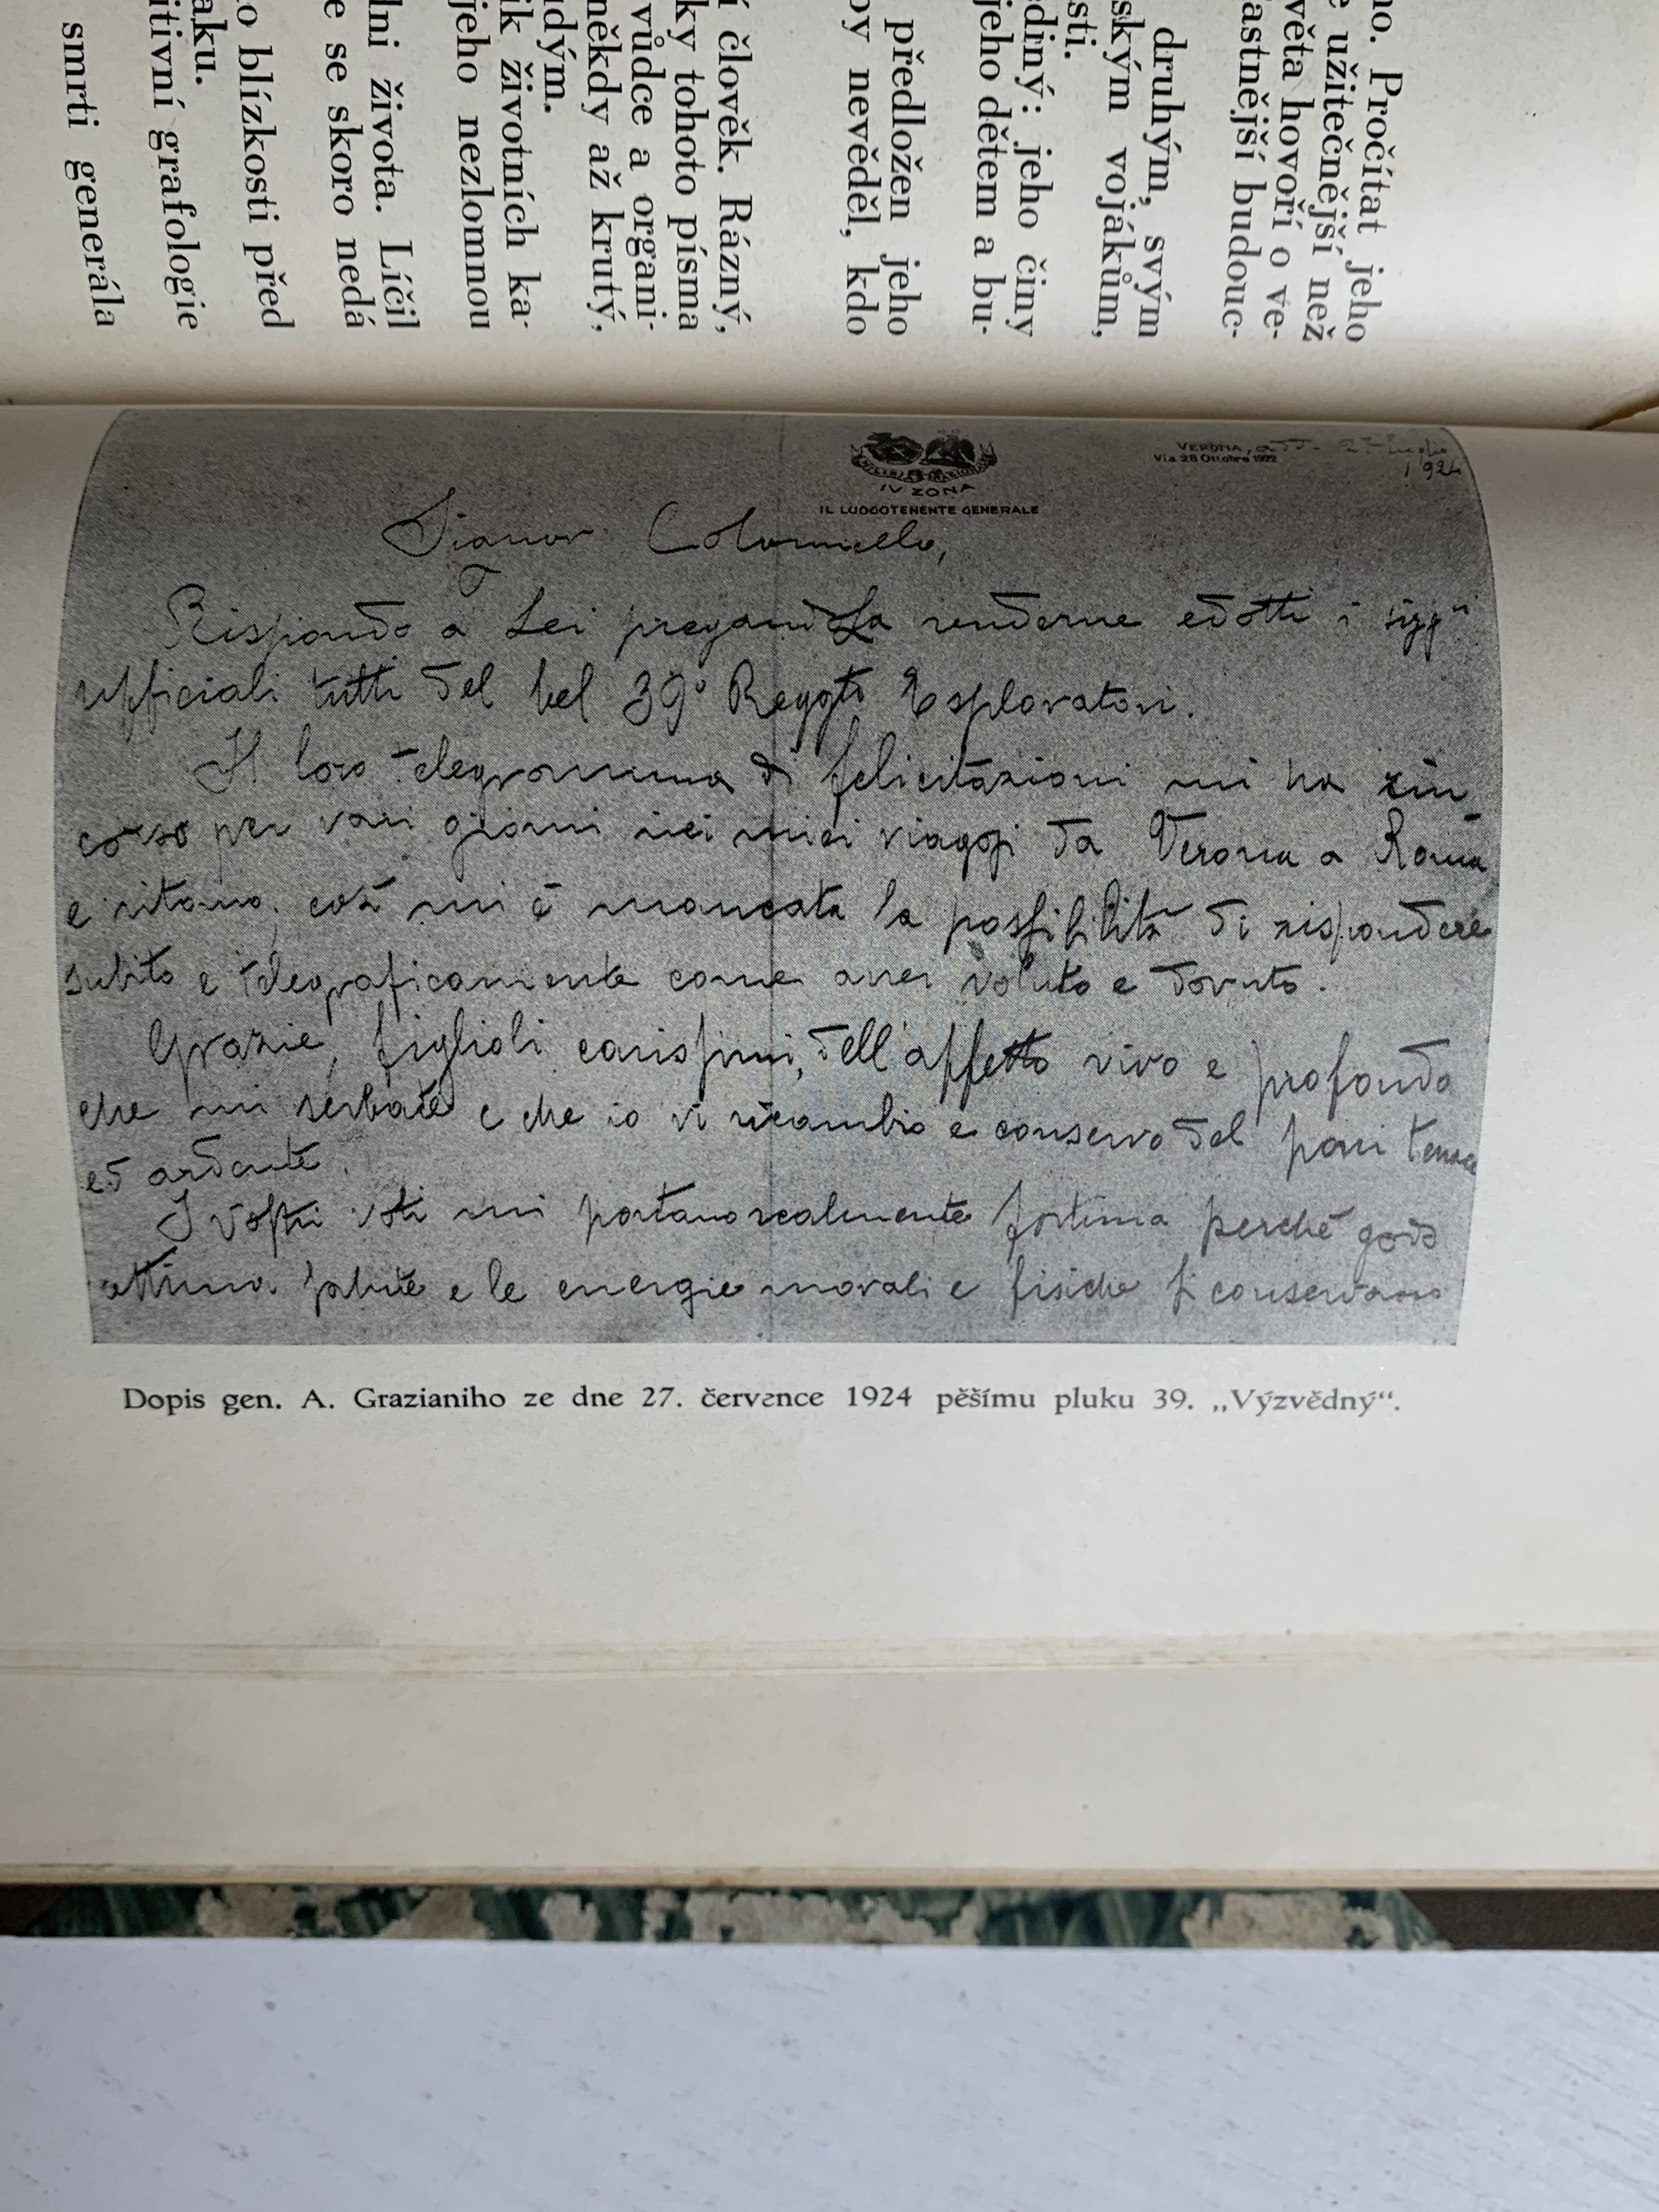 no. Pročítat jeho
e užitečnější než
věta hovoří o ve-
astnější budouc-
druhým, svým
ským vojákům,
sti.
edirný: jeho činy
jeho dětem a bu-
předložen jeho
by nevěděl, kdo
í člověk. Rázný,
ky tohoto písma
vůdce a organi-
někdy až krutý,
udým.
ik životních ka-
jeho nezlomnou
lni života. Líčil
e se skoro nedá
o blízkosti před
aku.
itivní grafologie
smrti generála
VERONA, 27 Luglio
Via 28 Ottobre 1922
1924
IV ZONA
IL LUOGOTENENTE GENERALE
Signor Colonnello,
Rispondo a Lei pregandoLa renderne edotti i sigg.ri
ufficiali tutti del bel 39° Reggto Esploratori.
Il loro telegramma di felicitazioni mi ha rin-
corso per vari giorni nei miei viaggi da Verona a Roma
e ritorno; così mi è mancata la possibilità di rispondere
subito e telegraficamente come avrei voluto e dovuto.
Grazie, figlioli carissimi, dell'affetto vivo e profondo
che mi serbate e che io vi ricambio e conservo del pari tenace
ed ardente.
I vostri voti mi portano realmente fortuna perché godo
ottima salute e le energie morali e fisiche si conservano
Dopis gen. A. Grazianiho ze dne 27. července 1924 pěšímu pluku 39. „Výzvědný“.